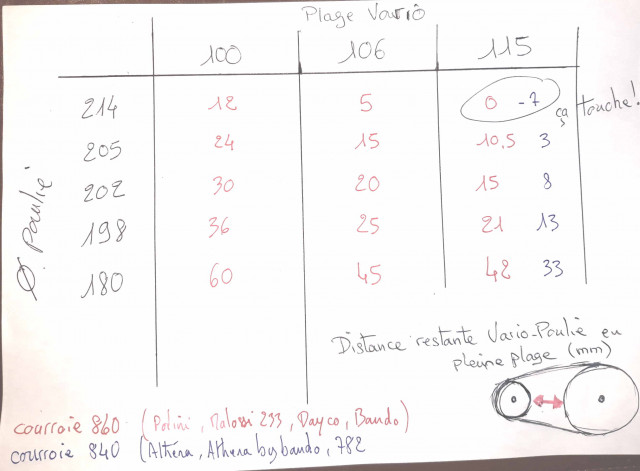 Plage Vario
100 106 115
214 12 5 0 -7 ça touche!
205 24 15 10,5 3
202 30 20 15 8
198 36 25 21 13
180 60 45 42 33
Ø Poulie
Distance restante Vario-Poulie en
pleine plage (mm)
courroie 860 (Polini, Malossi 233, Dayco, Bando)
courroie 840 (Athena, Athena by bando, 782